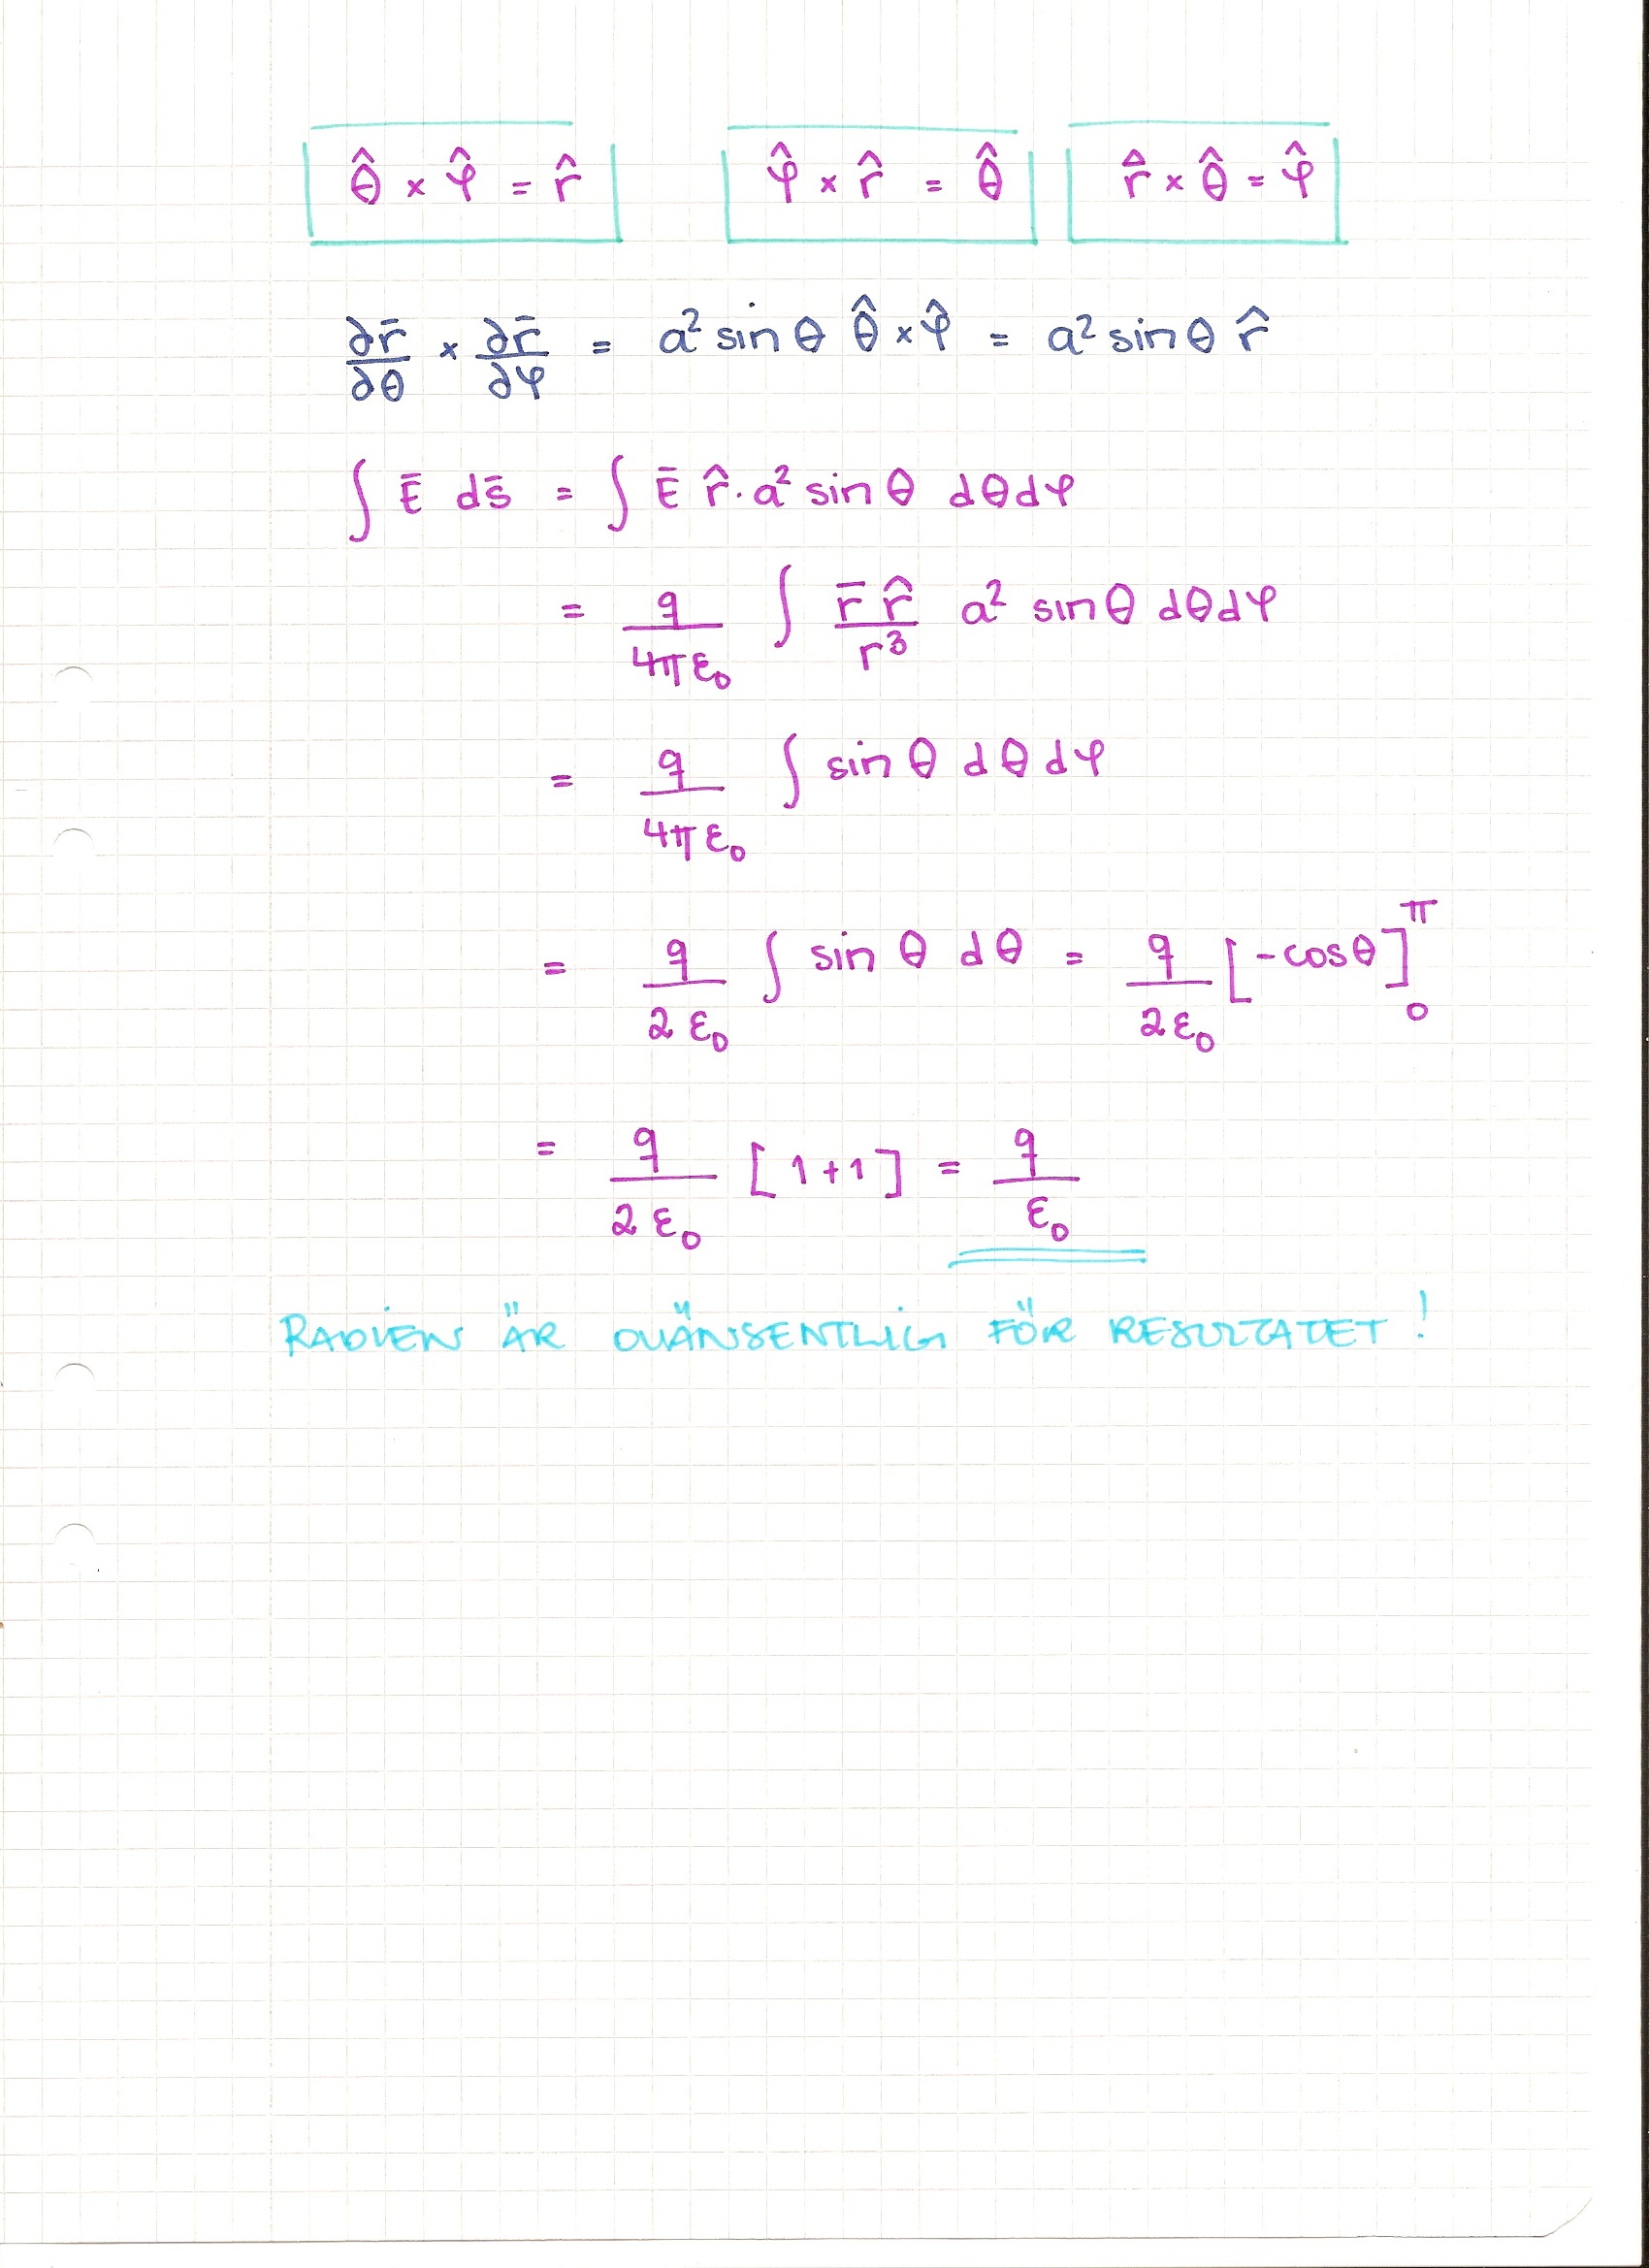 θ̂ × φ̂ = r̂   φ̂ × r̂ = θ̂   r̂ × θ̂ = φ̂
∂r̄/∂θ × ∂r̄/∂φ = a² sin θ θ̂ × φ̂ = a² sin θ r̂
∫ Ē ds̄ = ∫ Ē r̂ · a² sin θ dθdφ
= q/4πε₀ ∫ r̄ r̂/r³ a² sin θ dθdφ
= q/4πε₀ ∫ sin θ dθ dφ
= q/2ε₀ ∫ sin θ dθ = q/2ε₀ [-cosθ]₀^π
= q/2ε₀ [1+1] = q/ε₀
RADIEN ÄR OVÄNSENTLIG FÖR RESULTATET!